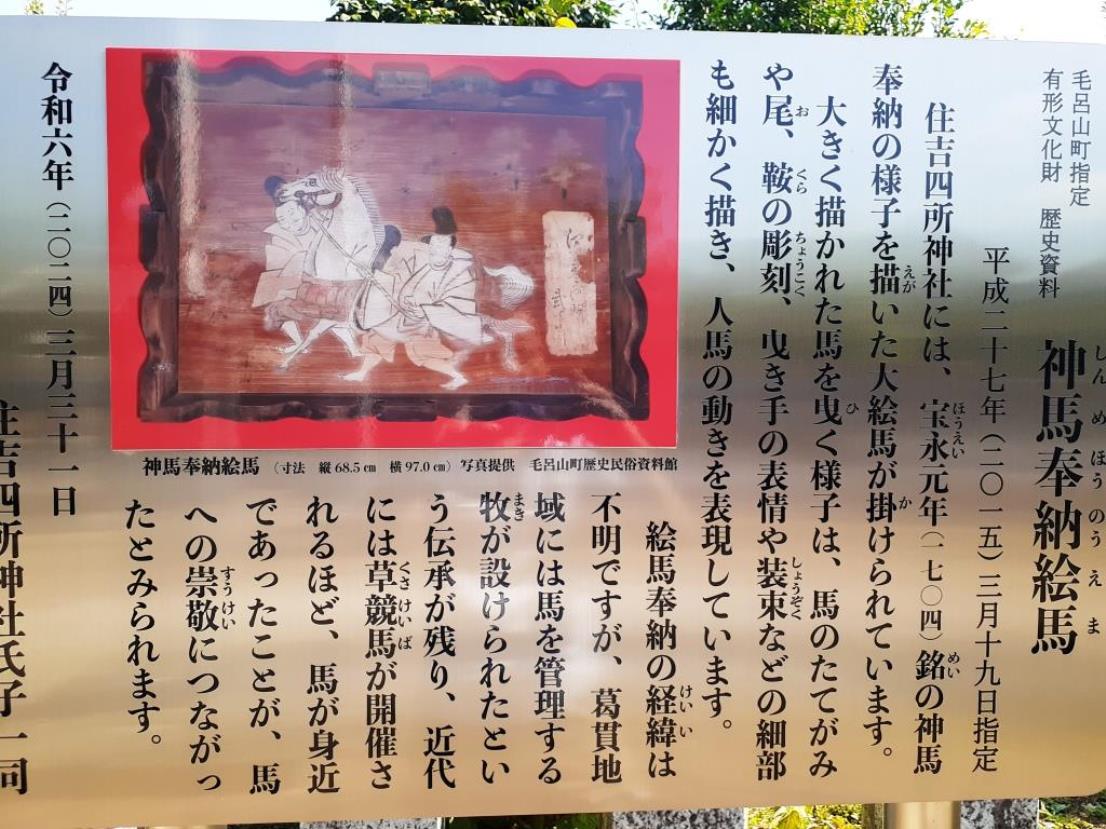 毛呂山町指定
有形文化財　歴史資料
神馬奉納絵馬
しんめほうのうえま
平成二十七年(二〇一五)三月十九日指定
住吉四所神社には、宝永元年(一七〇四)銘の神馬
ほうえい
めい
奉納の様子を描いた大絵馬が掛けられています。
えが
か
大きく描かれた馬を曳く様子は、馬のたてがみ
ひ
や尾、鞍の彫刻、曳き手の表情や装束などの細部
お
くら
ちょうこく
しょうぞく
も細かく描き、人馬の動きを表現しています。
絵馬奉納の経緯は
けいい
不明ですが、葛貫地
域には馬を管理する
牧が設けられたとい
まき
う伝承が残り、近代
には草競馬が開催さ
くさけいば
れるほど、馬が身近
であったことが、馬
への崇敬につながっ
すうけい
たとみられます。
神馬奉納絵馬（寸法　縦68.5㎝　横97.0㎝）写真提供　毛呂山町歴史民俗資料館
令和六年(二〇二四)三月三十一日
住吉四所神社氏子一同